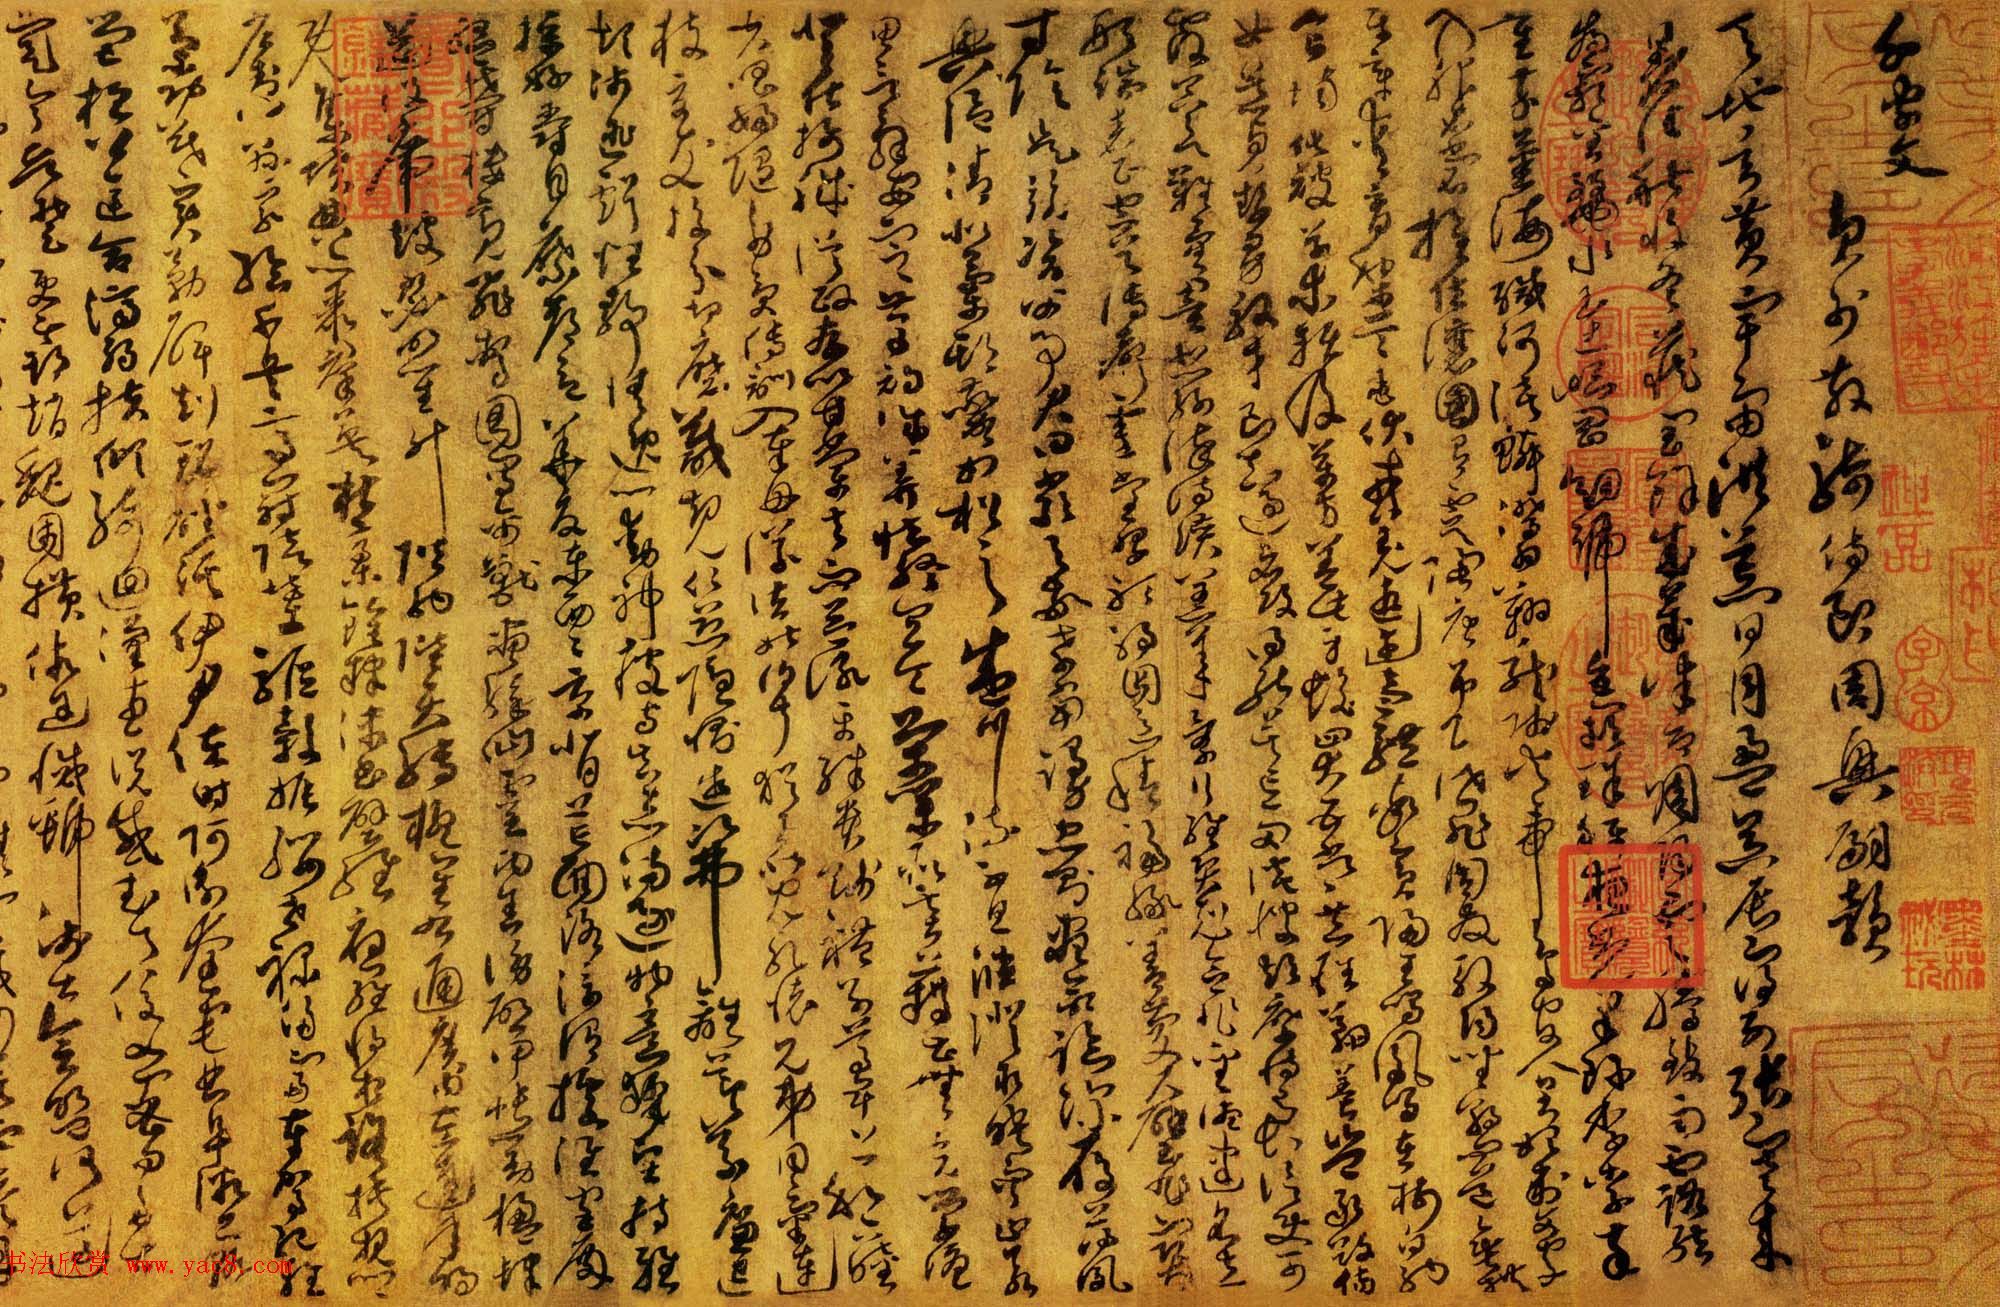 千字文
員外散騎侍郎周興嗣韻
天地玄黃宇宙洪荒日月盈昃辰宿列張寒來
暑往秋收冬藏閏餘成歲律呂調陽雲騰致雨露結
為霜金生麗水玉出崑崗劍號巨闕珠稱夜光菓珍李柰菜
重芥薑海鹹河淡鱗潛羽翔龍師火帝鳥官人皇始制文字
乃服衣裳推位讓國有虞陶唐弔民伐罪周發殷湯坐朝問道垂拱
平章愛育黎首臣伏戎羌遐邇壹體率賓歸王鳴鳳在樹白駒
食場化被草木賴及萬方蓋此身髮四大五常恭惟鞠養豈敢毀傷
女慕貞絜男效才良知過必改得能莫忘罔談彼短靡恃己長信使可
覆器欲難量墨悲絲染詩讚羔羊景行維賢剋念作聖德建名立
形端表正空谷傳聲虛堂習聽禍因惡積福緣善慶尺璧非寶
寸陰是競資父事君曰嚴與敬孝當竭力忠則盡命臨深履薄夙
興溫凊似蘭斯馨如松之盛川流不息淵澄取映容止若
思言辭安定篤初誠美慎終宜令榮業所基籍甚無竟學優
登仕攝職從政存以甘棠去而益詠樂殊貴賤禮別尊卑上和下睦
夫唱婦隨外受傅訓入奉母儀諸姑伯叔猶子比兒孔懷兄弟同氣連
枝交友投分切磨箴規仁慈隱惻造次弗離節義廉退
顛沛匪虧性靜情逸心動神疲守真志滿逐物意移堅持雅
操好爵自縻都邑華夏東西二京背邙面洛浮渭據涇宮殿
盤鬱樓觀飛驚圖寫禽獸畫彩仙靈丙舍傍啟甲帳對楹肆
筵設席鼓瑟吹笙升階納陛弁轉疑星右通廣內左達承明
既集墳典亦聚群英杜稿鍾隸漆書壁經府羅將相路俠槐卿
戶封八縣家給千兵高冠陪輦驅轂振纓世祿侈富車駕肥輕
策功茂實勒碑刻銘磻溪伊尹佐時阿衡奄宅曲阜微旦孰
營桓公匡合濟弱扶傾綺迴漢惠說感武丁俊乂密勿多士
寔寧晉楚更霸趙魏困橫假途滅虢踐土會盟何遵
书法欣赏 www.yac8.com